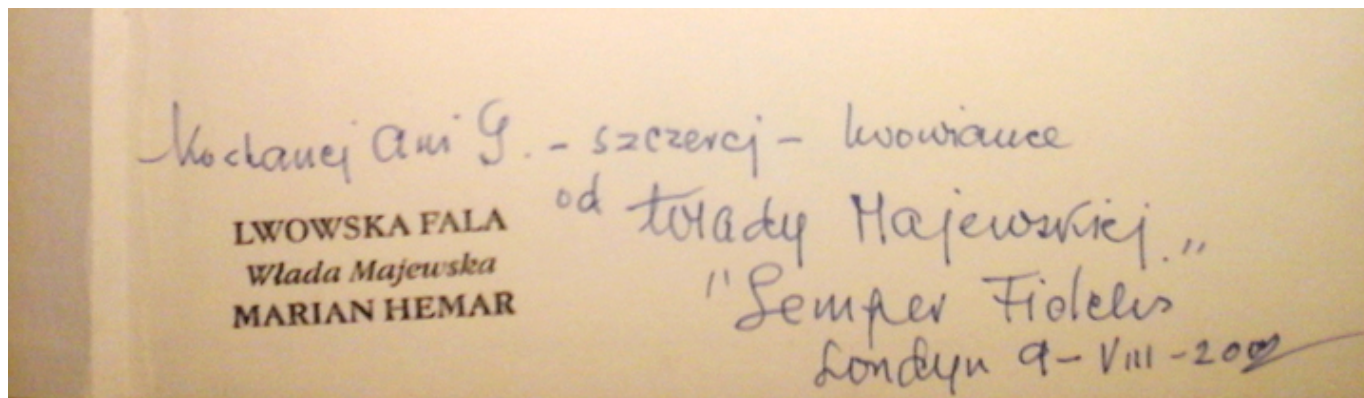 Kochanej Ani G. - szczerej - lwowiance
od Włady Majewskiej.
"Semper Fidelis"
Londyn 9-VIII-
LWOWSKA FALA
Włada Majewska
MARIAN HEMAR